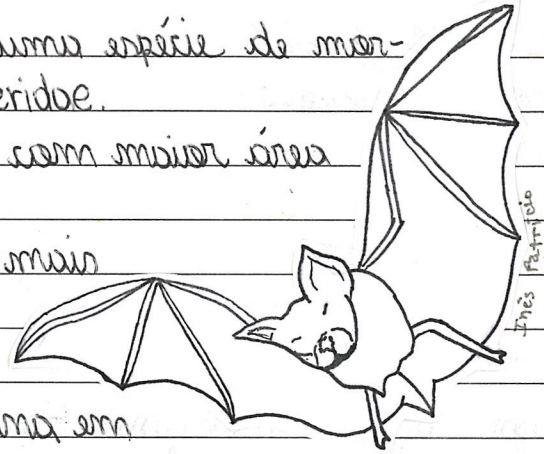 uma espécie de mor-
eridae.
com maior área
mais
ma em
Inês Patrício